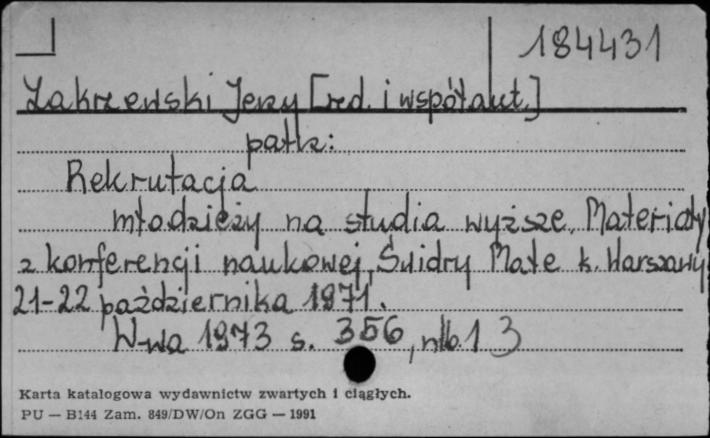 184431
Zakrzewski Jerzy [red. i współaut.]
patrz:
Rekrutacja
młodzieży na studia wyższe. Materiały
z konferencji naukowej, Świdry Małe k. Warszawy
21-22 października 1971.
W-wa 1973 s. 356, nlb. 1 3
Karta katalogowa wydawnictw zwartych i ciągłych.
PU — B144 Zam. 849/DW/On ZGG — 1991